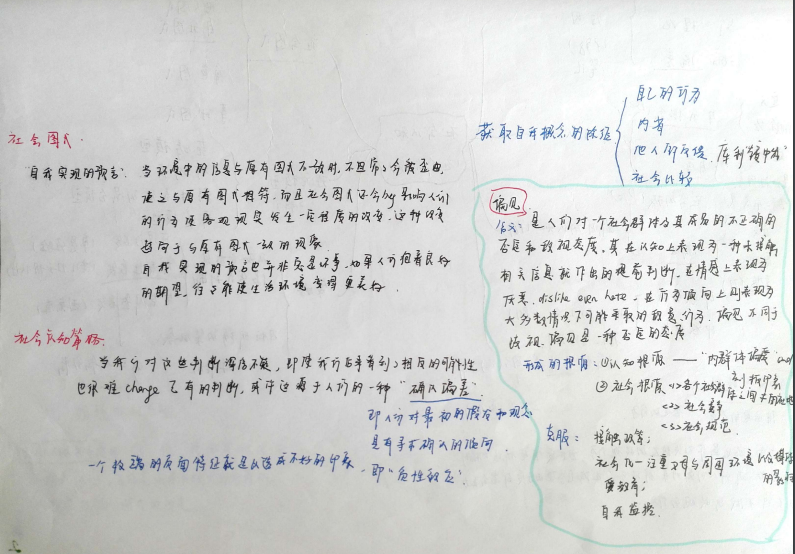 社会图式.
"自我实现的预言". 当环境中的信息与原有图式不一致时,不但会被歪曲,
使之与原有图式相符,而且社会图式还会影响人们
的行为使客观现实发生一定程度的改变,这种改变
趋向于与原有图式一致的现象.
自我实现的预言也并非总是坏事,如果人们抱着良好
的期望,往往能使生活环境变得更美好.
社会认知策略.
当我们对这些判断深信不疑,即使我们后来看到相反的可能性
也很难change已有的判断,或许这源于人们的一种"确认偏差"
即人们对最初的假设和观念
是有寻求确认的倾向
一个极端的负面特征就足以造成不好的印象,即"负性效应".
获取自我概念的途径
自己的行为
内省
他人的反馈. 库利"镜中我"
社会比较
偏见
含义:是人们对一个社会群体及其成员的不正确的
否定和敌视态度,其在认知上表现为一种未接触
相关信息就作出的提前判断,在情感上表现为
厌恶、dislike even hate,在行为倾向上则表现为
大多数情况下可能采取的敌意行为. 偏见不同于
歧视,偏见是一种否定的态度
形成的根源:①认知根源——"内群体偏爱"and
刻板印象
②社会根源<1>各个社会群体之间
<2>社会竞争
<3>社会规范.
克服: 接触政策;
社会化—注重父母与周围环境以及媒体
的影响
受教育;
自我监控.